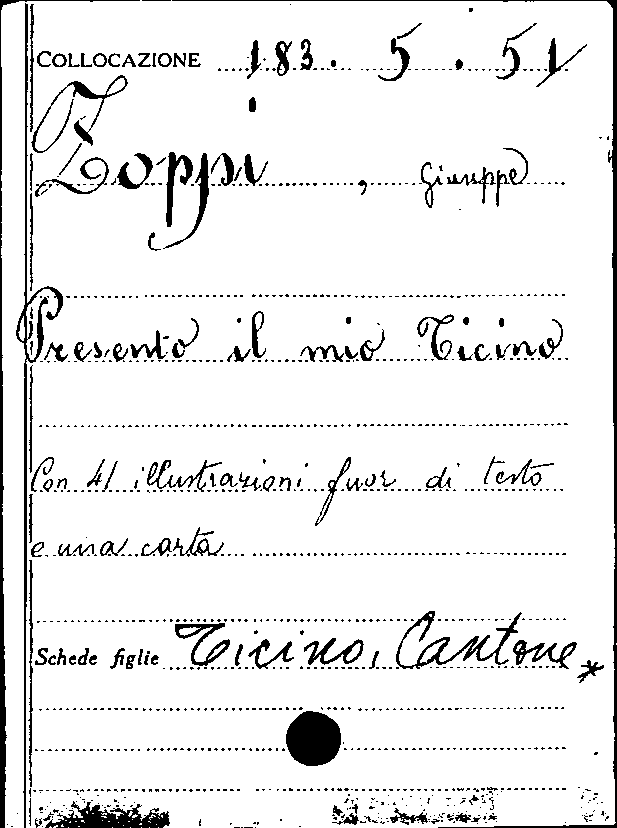 COLLOCAZIONE 183. 5. 51
Zoppi, Giuseppe
Presento il mio Ticino
Con 41 illustrazioni fuor di testo
e una carta
Schede figlie Ticino, Cantone *